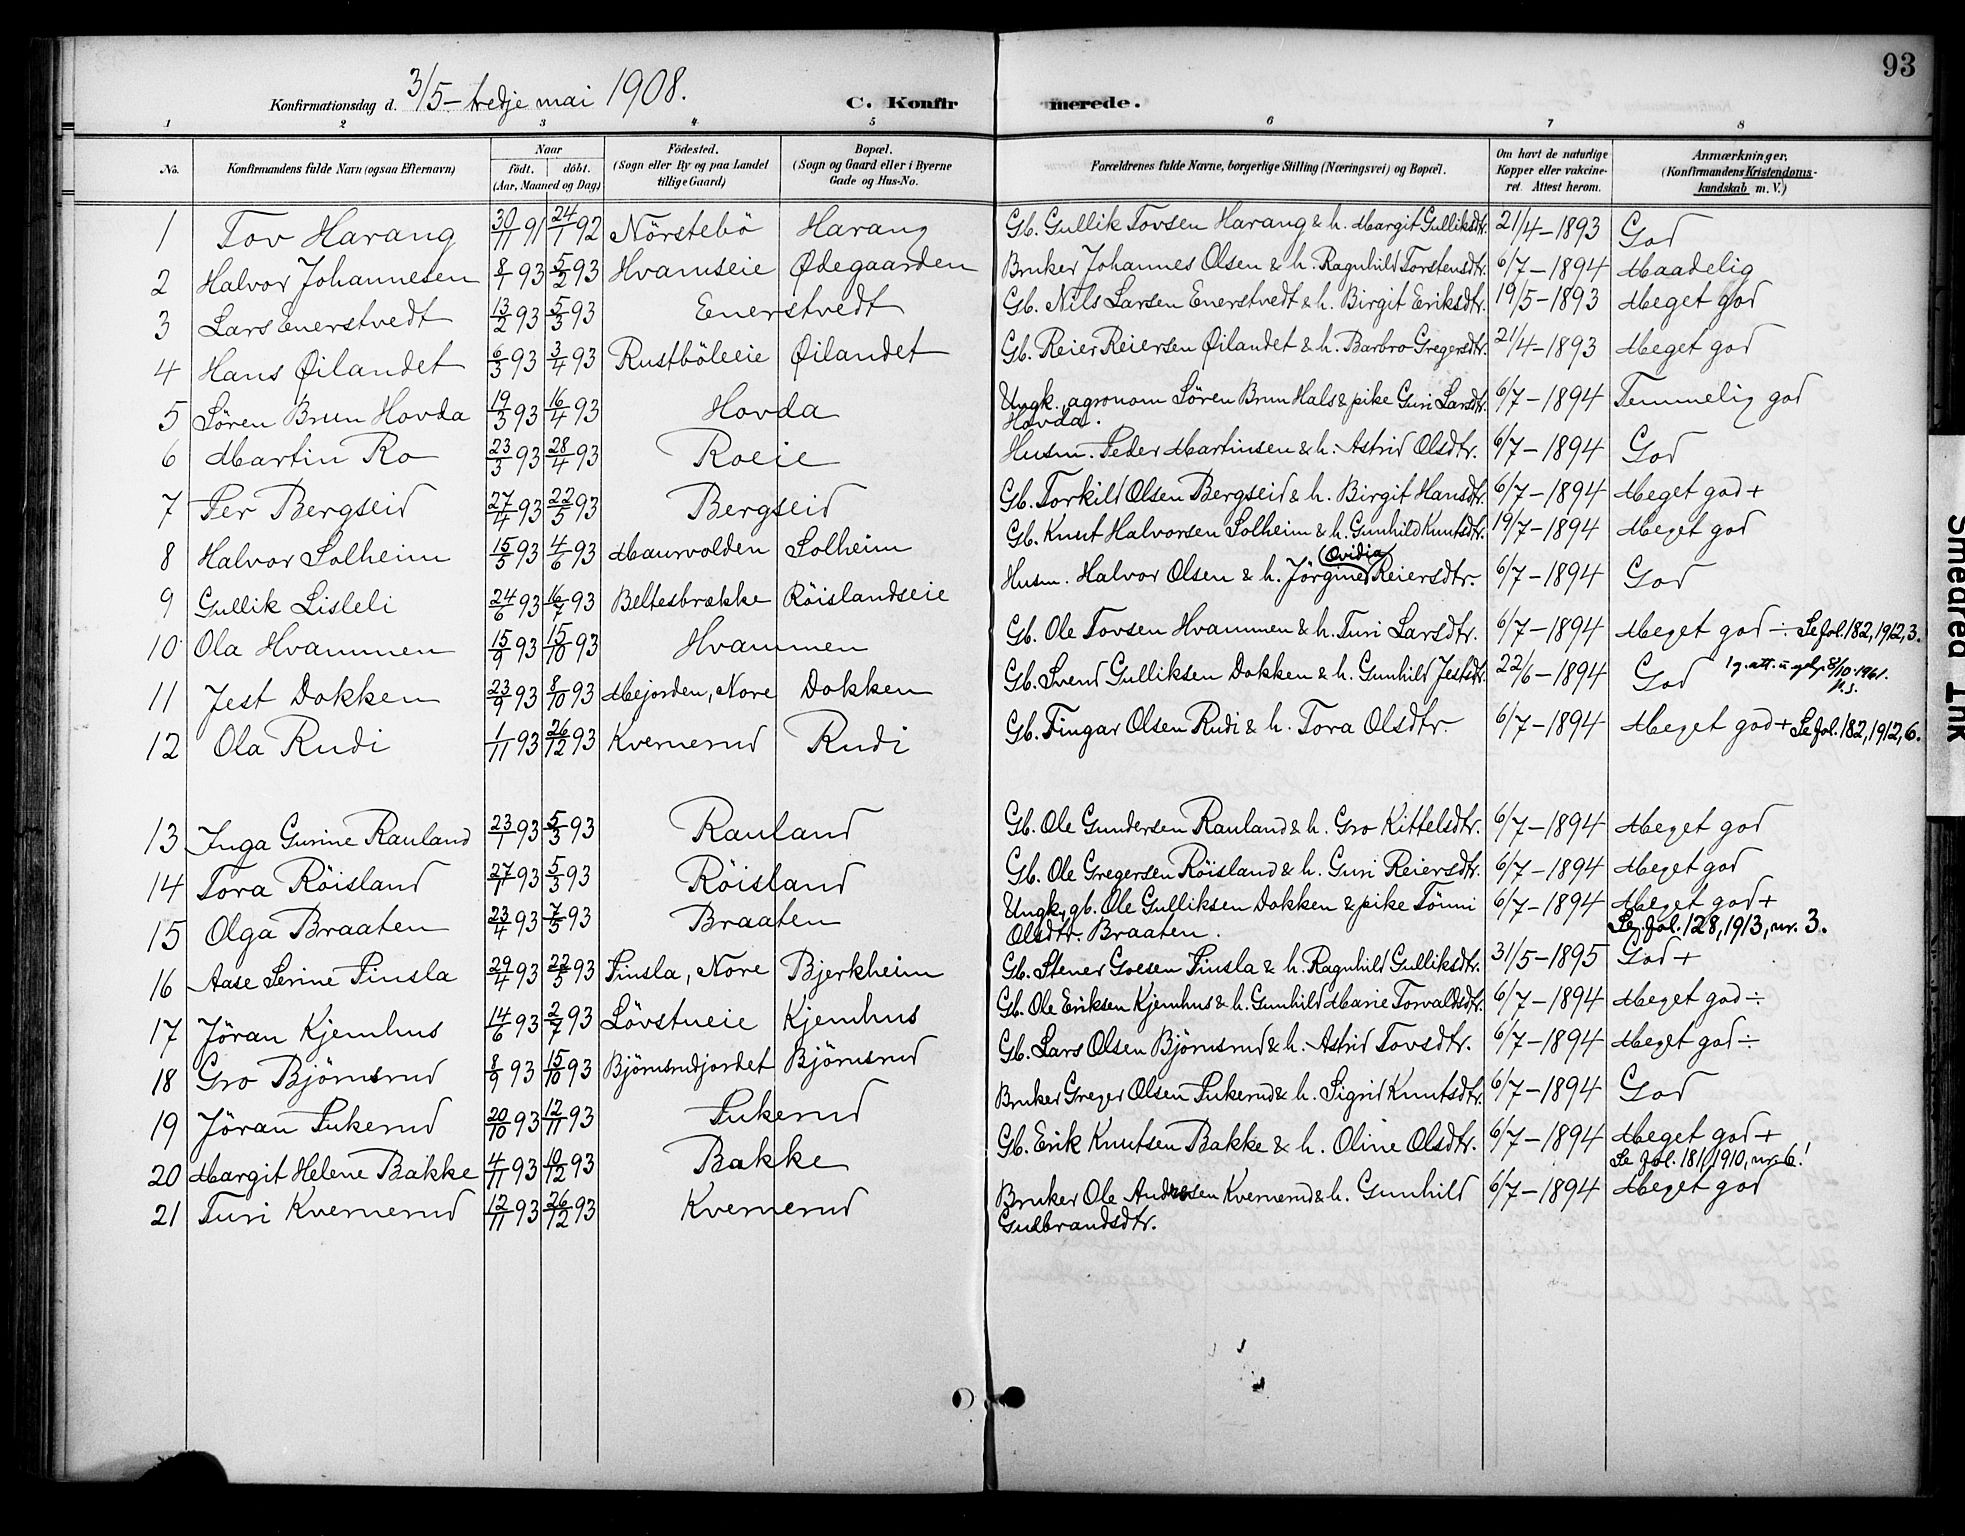 93
Konfirmationsdag d. 3/5 – tredje mai 1908. C. Konfirmerede.
1 2 3 4 5 6 7 8
No. Konfirmandens fulde Navn (ogsaa Efternavn) Naar født. døbt. (Aar, Maaned og Dag) Fødested. (Sogn eller By og paa Landet tillige Gaard) Bopæl. (Sogn og Gaard eller i Byerne Gade og Hus-No. Forældrenes fulde Navne, borgerlige Stilling (Næringsvei) og Bopæl. Om havt de naturlige Kopper eller vakcineret. Attest herom. Anmærkninger. (Konfirmandens Kristendomskundskab m. V.)
1 Tov Harang 30/11 91 24/1 92 Nörstebö Harang Gb. Gullik Tovsen Harang & h. Margit Gulliksdtr. 21/4 – 1893 God
2 Halvor Johannesen 8/1 93 5/2 93 Hvamseie Ødegaarden Bruker Johannes Olsen & h. Ragnhild Torstensdtr. 6/7 – 1894 Maadelig
3 Lars Enerstvedt 13/2 93 5/3 93 Enerstvedt Gb. Nils Larsen Enerstvedt & h. Birgit Eriksdtr. 19/5 – 1893 Meget god
4 Hans Øilandet 6/3 93 3/4 93 Rustböleeie Øilandet Gb. Reier Reiersen Øilandet & h. Barbro Gregersdtr. 21/4 – 1893 Meget god
5 Sören Brun Hovda 19/3 93 16/4 93 Hovda Ungk., agronom Sören Brun Hals & pike Guri Larsdtr. 6/7 – 1894 Temmelig god
Hovda.
6 Martin Ro 23/3 93 28/4 93 Roeie Husm. Peder Martinsen & h. Astrid Olsdtr. 6/7 – 1894 God
7 Per Bergseid 27/4 93 22/5 93 Bergseid Gb. Torkild Olsen Bergseid & h. Birgit Hansdtr. 6/7 – 1894 Meget god +
8 Halvor Solheim 15/5 93 4/6 93 Maurvolden Solheim Gb. Knut Halvorsen Solheim & h. Gunhild Knutsdtr. 19/7 – 1894 Meget god
(Ovidia)
9 Gullik Lisleli 24/6 93 16/7 93 Beltesbrække Röislandseie Husm. Halvor Olsen & h. Jörgine Reiersdtr. 6/7 – 1894 God
10 Ola Hvammen 15/9 93 15/10 93 Hvammen Gb. Ole Tovsen Hvammen & h. Turi Larsdtr. 6/7 – 1894 Meget god ÷ Se fol. 182, 1912, 3.
11 Jest Dokken 23/9 93 8/10 93 Mejorden, Nore Dokken Gb. Svend Gulliksen Dokken & h. Gunhild Jestsdtr. 22/6 – 1894 God 8/10-1961.
12 Ola Rudi 1/11 93 26/12 93 Kvernerud Rudi Gb. Fingar Olsen Rudi & h. Tora Olsdtr. 6/7 – 1894 Meget god + Se fol. 182, 1912, 6.
13 Inga Gurine Rauland 23/1 93 5/3 93 Rauland Gb. Ole Gundersen Rauland & h. Gro Kittelsdtr. 6/7 – 1894 Meget god
14 Tora Röisland 27/1 93 5/3 93 Röisland Gb. Ole Gregersen Röisland & h. Guri Reiersdtr. 6/7 – 1894 Meget god
15 Olga Braaten 23/4 93 7/5 93 Braaten Ungk., gb. Ole Gulliksen Dokken & pike Tönni 6/7 – 1894 Meget god +
Olsdtr. Braaten. Se fol. 128, 1913, nr. 3.
16 Aase Serine Tinsla 29/4 93 22/5 93 Tinsla, Nore Bjerkheim Gb. Stener Goesen Tinsla & h. Ragnhild Gulliksdtr. 31/5 – 1895 God +
17 Jöran Kjemhus 14/6 93 2/7 93 Lövstueie Kjemhus Gb. Ole Eriksen Kjemhus & h. Gunhild Marie Torvaldsdtr. 6/7 – 1894 Meget god ÷
18 Gro Björnsrud 8/9 93 15/10 93 Björnsrudjordet Björnsrud Gb. Lars Olsen Björnsrud & h. Astrid Tovsdtr. 6/7 – 1894 Meget god ÷
19 Jöran Sukerud 20/10 93 12/11 93 Sukerud Bruker Greger Olsen Sukerud & h. Sigrid Knutsdtr. 6/7 – 1894 God
20 Margit Helene Bakke 4/11 93 10/12 93 Bakke Gb. Erik Knutsen Bakke & h. Oline Olsdtr. 6/7 – 1894 Meget god +
Se fol. 181, 1910, nr. 6!
21 Turi Kvernerud 12/11 93 26/12 93 Kvernerud Bruker Ole Andersen Kvernerud & h. Gunhild 6/7 – 1894 Meget god
Gulbrandsdtr.
Smeared Ink